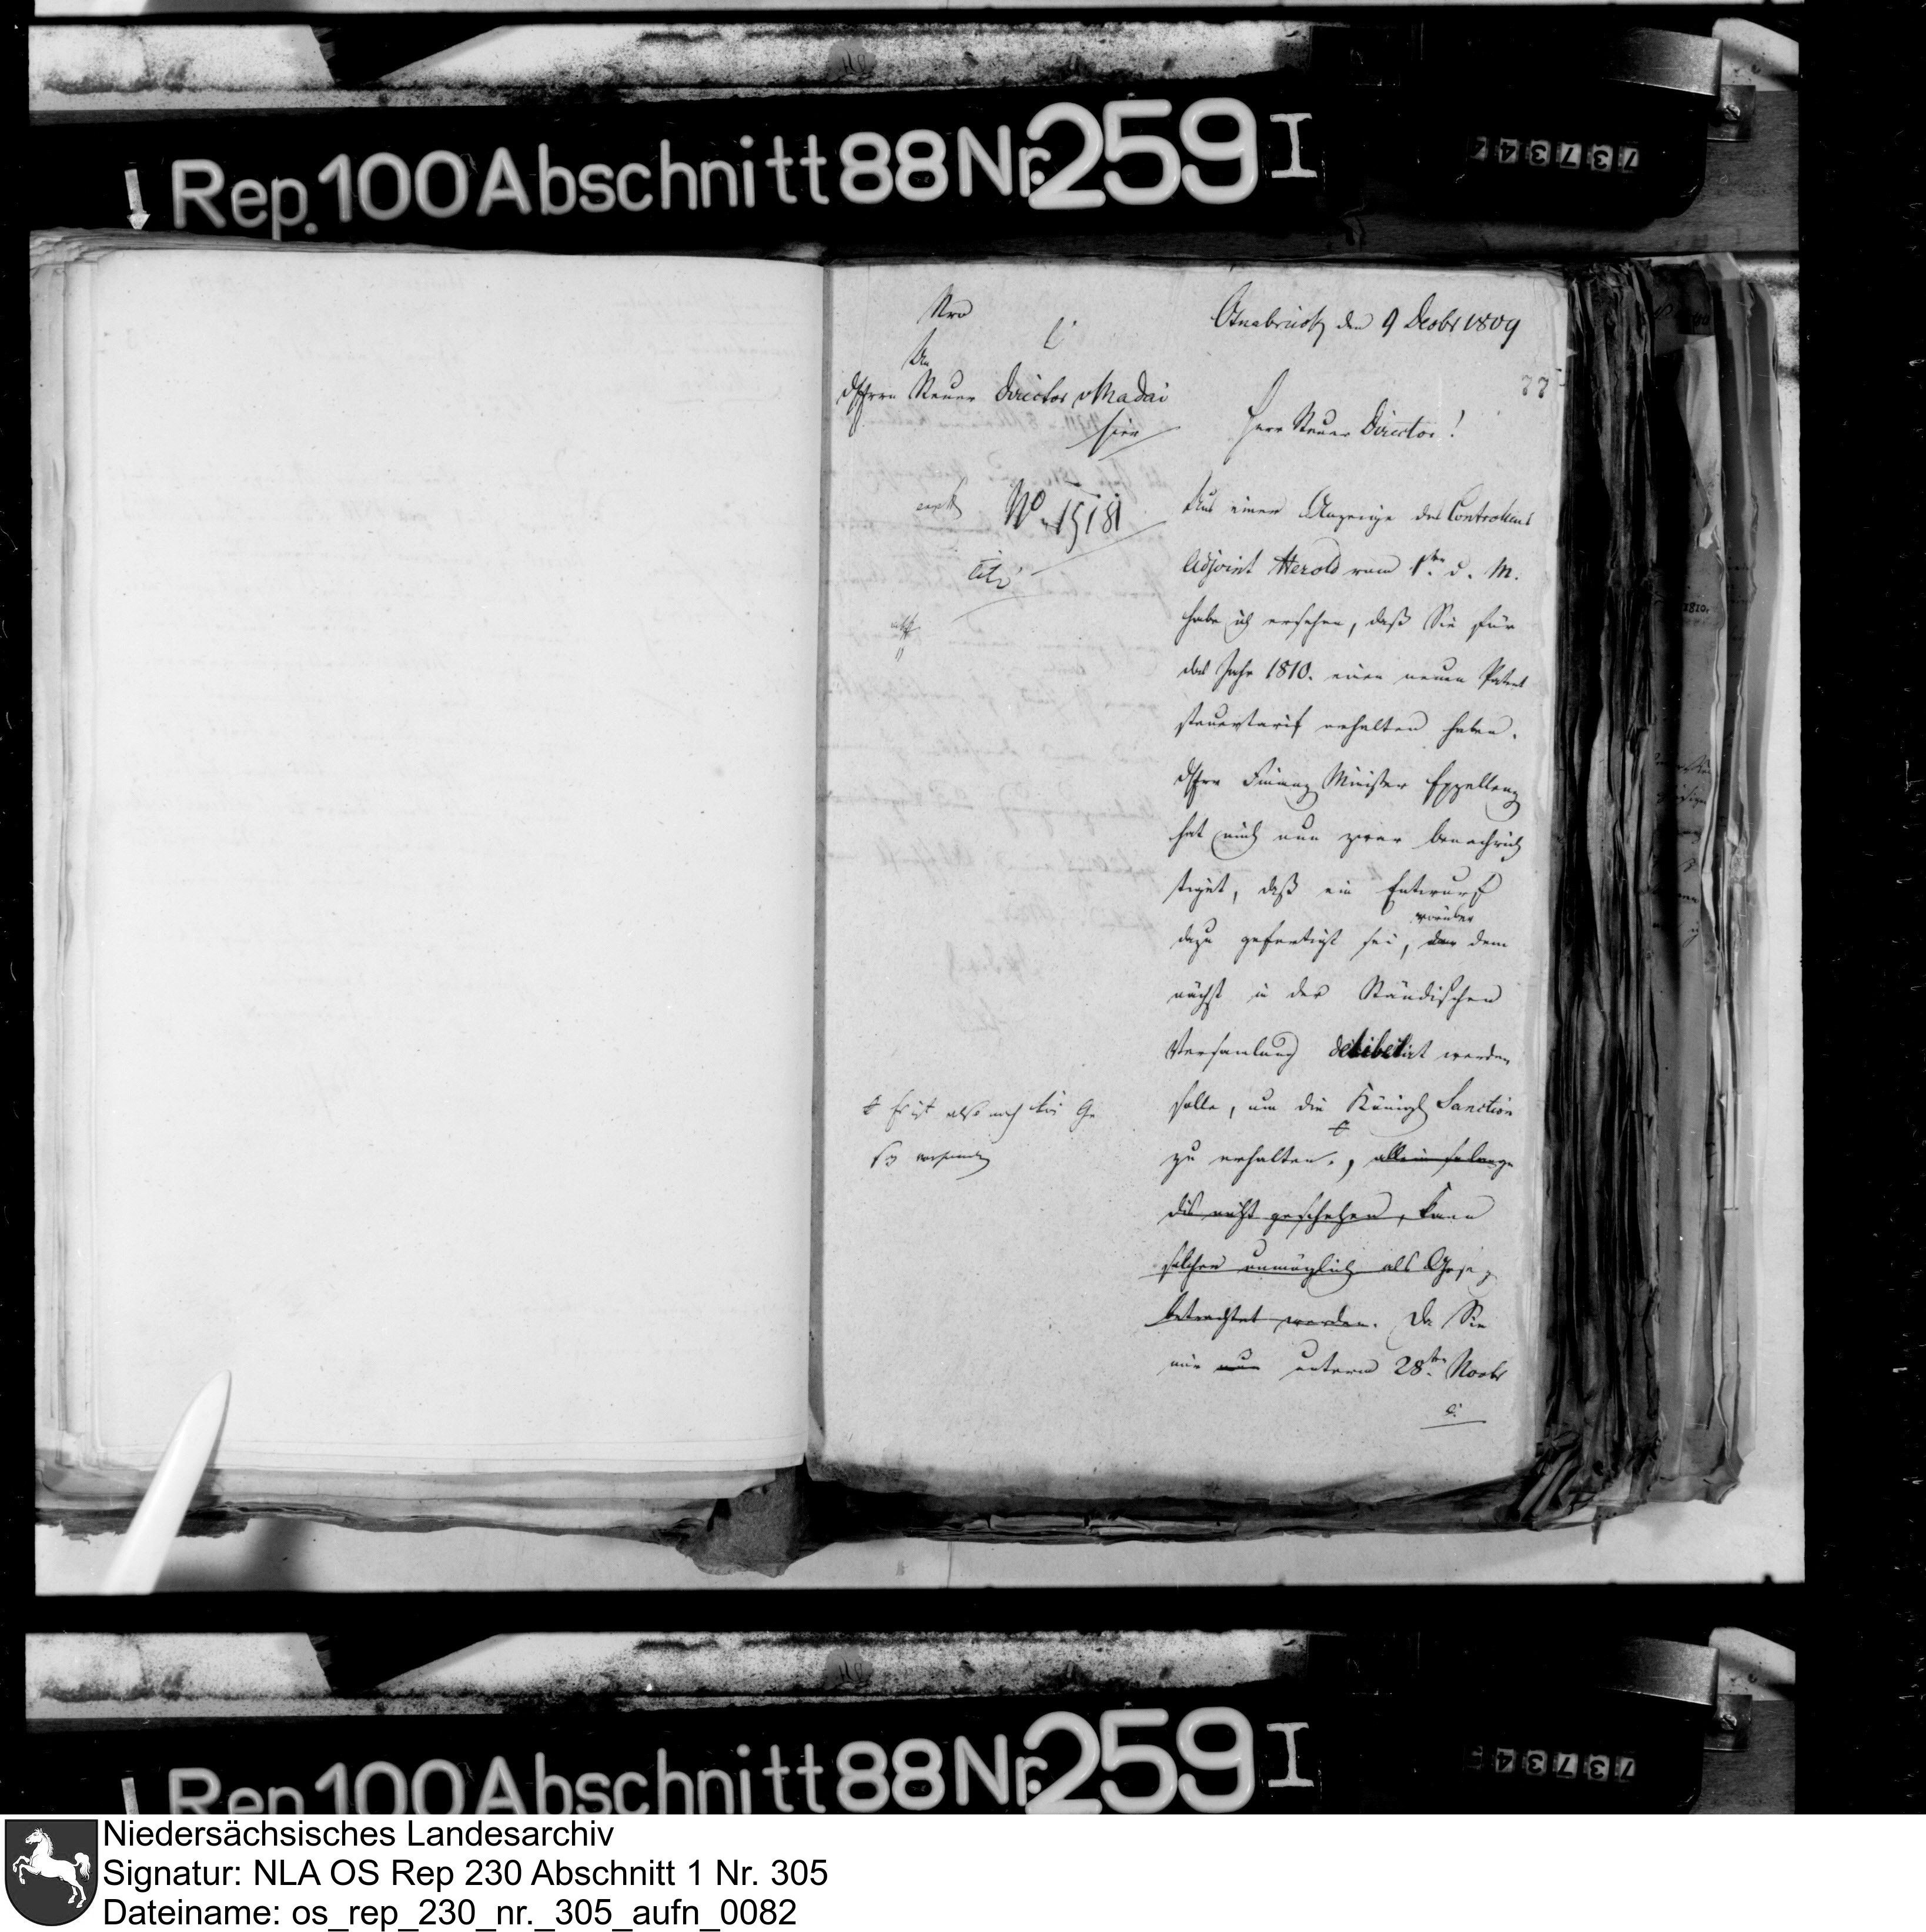 Rep. 100 Abschnitt 88 Nr. 259 I
Nro
An
d Herrn Steuer Director v Madai
hier
No. 1518
cito
Osnabrück den 9 Decbr 1809
77
Herr Steuer Director!
Aus einer Anzeige des Controleurs
Adjoint Herold vom 1ten d. M.
habe ich ersehen, daß Sie für
das Jahr 1810. einen neuen Patent
steuertarif erhalten haben.
Des Herrn Finanz Minister Exzellenz
hat mich nun zwar benachrich
tiget, daß ein Entwurf
worüber
dazu gefertigt sei, der dem
nächst in der Ständischen
Versamlung deliberirt werden
solle, um die Königl Sanction
zu erhalten., allein solange
dis nicht geschehen, kann
solcher unmöglich als Gesez
betrachtet werden. Da Sie
mir nun unterm 28ten Novbr
Es ist also noch kein Ge
sez vorhanden
1810.
Rep. 100 Abschnitt 88 Nr. 259 I
Niedersächsisches Landesarchiv
Signatur: NLA OS Rep 230 Abschnitt 1 Nr. 305
Dateiname: os_rep_230_nr._305_aufn_0082